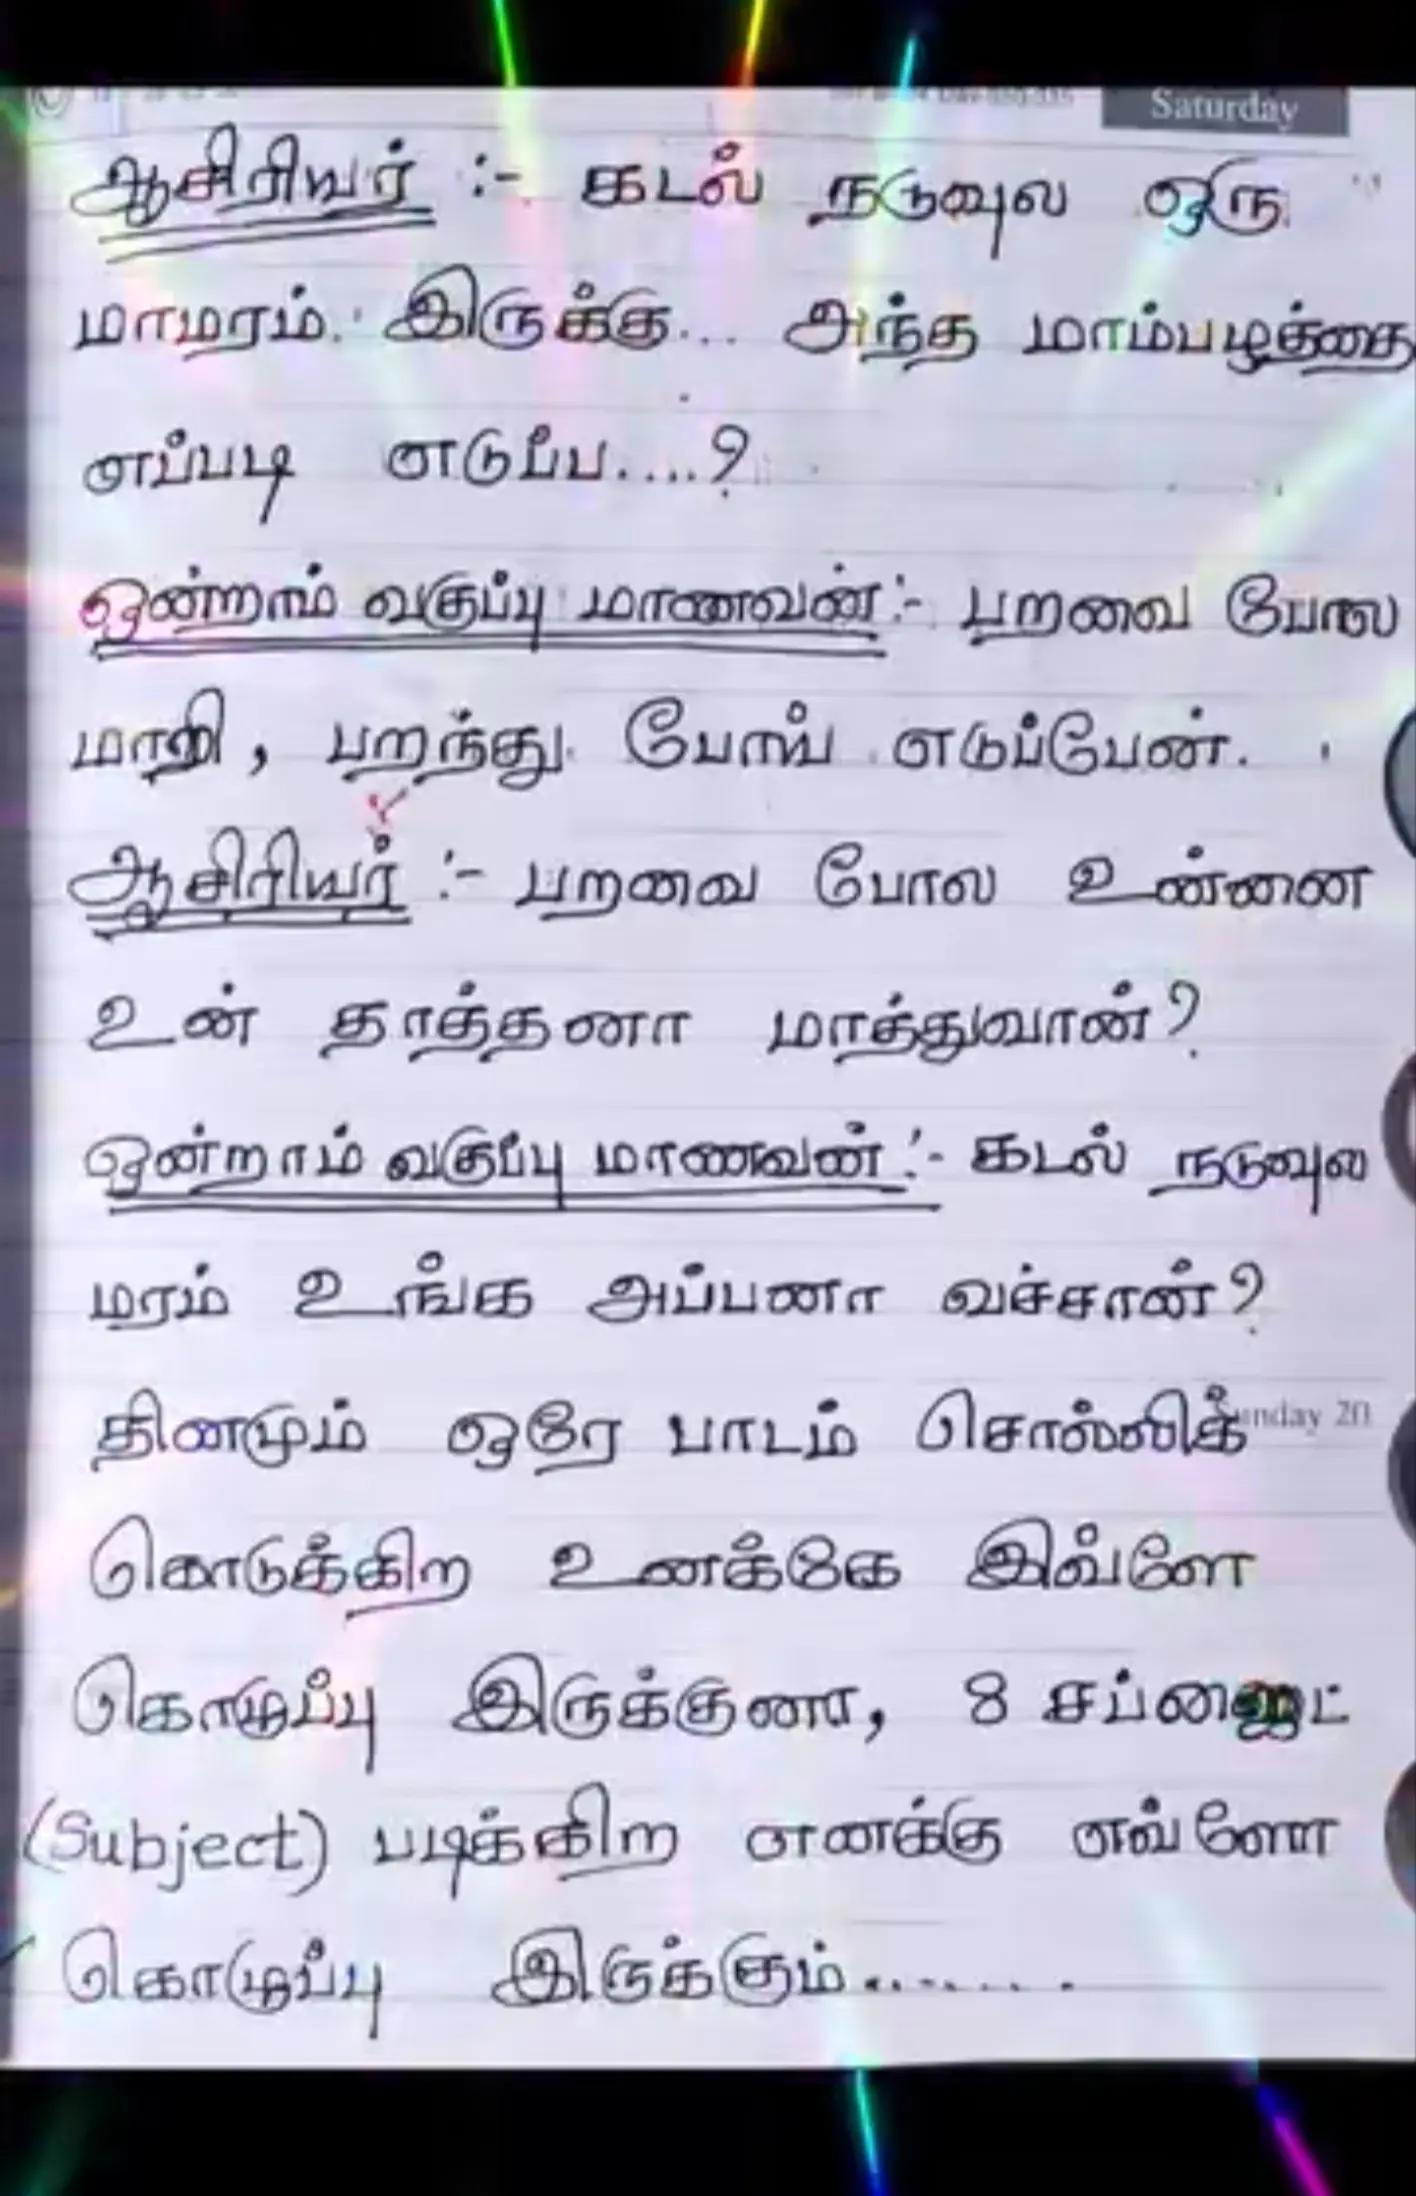 Saturday
ஆசிரியர் :- கடல் நடுவுல ஒரு
மாமரம். இருக்கு... அந்த மாம்பழத்தை
எப்படி எடுப்ப....?
ஒன்றாம் வகுப்பு மாணவன்:- பறவை போல
மாறி, பறந்து போய் எடுப்பேன்.
ஆசிரியர் :- பறவை போல உன்னை
உன் தாத்தனா மாத்துவான்?
ஒன்றாம் வகுப்பு மாணவன்:- கடல் நடுவுல
மரம் உங்க அப்பனா வச்சான்?
தினமும் ஒரே பாடம் சொல்லிக்
கொடுக்கிற உனக்கே இவ்ளோ
கொழுப்பு இருக்குனா, 8
(Subject) படிக்கிற எனக்கு எவ்ளோ
கொழுப்பு இருக்கும்........